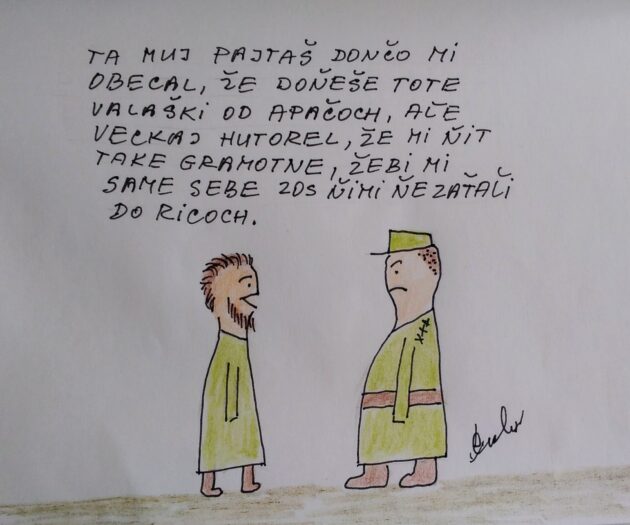 TA MUJ PAJTAŠ DONČO MI
OBECAL, ŽE DOŇEŠE TOTE
VALAŠKI OD APAČOCH, AĽE
VECKAJ HUTOREL, ŽE MI ŇIT
TAKE GRAMOTNE, ŽEBI MI
SAME SEBE ZDS ŇIMI ŇEZAŤAĽI
DO RICOCH.